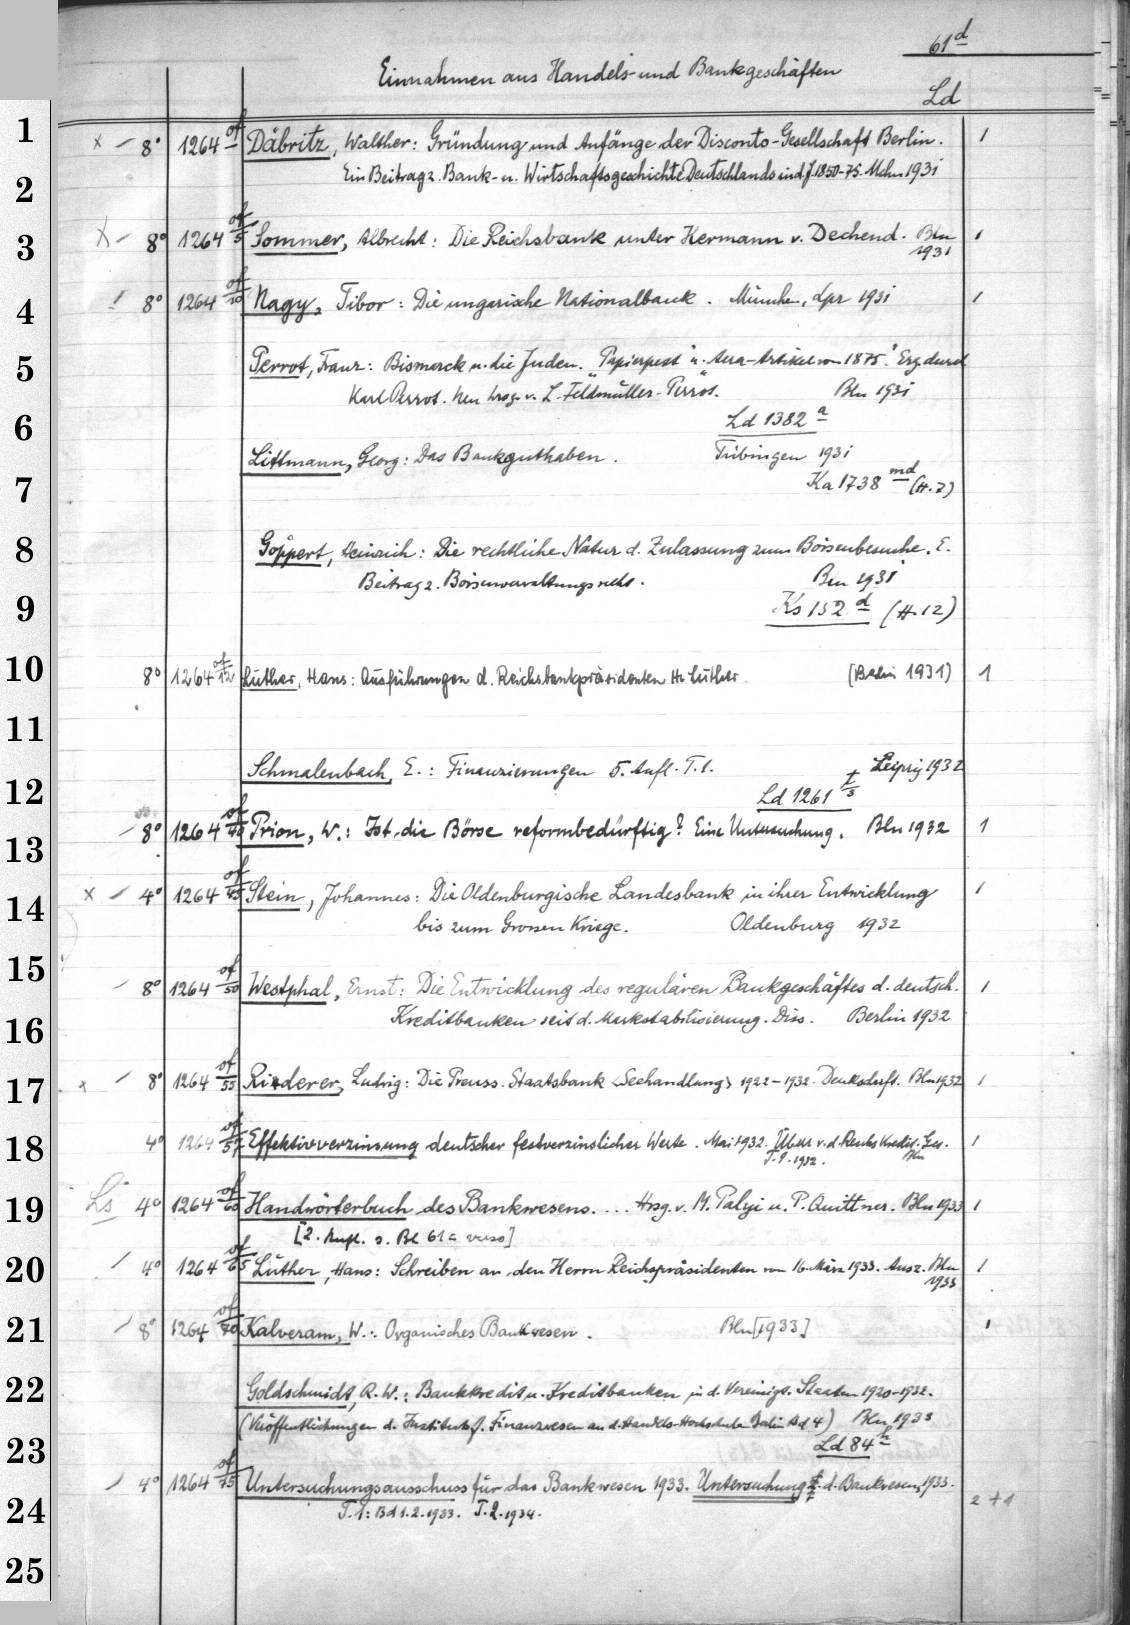 61d
Einnahmen aus Handels- und Bankgeschäften
Ld
1 x 8° 1264 of Däbritz, Walther: Gründung und Anfänge der Disconto-Gesellschaft Berlin. 1
2 Ein Beitrag z. Bank- u. Wirtschaftsgeschichte Deutschlands in d. J. 1850-75. Mchn 1931
3 X 8° 1264 of/5 Sommer, Albrecht: Die Reichsbank unter Hermann v. Dechend. Bln 1
1931
4 8° 1264 of/10 Nagy, Tibor: Die ungarische Nationalbank. München, Lpz 1931 1
5 Perrot, Franz: Bismarck u. die Juden. "Papierpest" u. "Aera-Artikel von 1875". Erg. durch
Karl Perrot. Neu hrsg. v. L. Feldmüller-Perrot. Bln 1931
6 Ld 1382 a
Littmann, Georg: Das Bankguthaben. Tübingen 1931
7 Ka 1738 md (H. 7)
8 Göppert, Heinrich: Die rechtliche Natur d. Zulassung zum Börsenbesuche. E.
Beitrag z. Börsenverwaltungsrecht. Bln 1931
9 Ks 152 d (H. 12)
10 8° 1264 of/12 Luther, Hans: Ausführungen d. Reichsbankpräsidenten Hr Luther. (Berlin 1931) 1
11
Schmalenbach, E.: Finanzierungen 5. Aufl. T. 1. Leipzig 1932
12 Ld 1261 t/3
13 8° 1264 of/40 Prion, W.: Ist die Börse reformbedürftig? Eine Untersuchung. Bln 1932 1
14 x 4° 1264 of/45 Stein, Johannes: Die Oldenburgische Landesbank in ihrer Entwicklung 1
bis zum Grossen Kriege. Oldenburg 1932
15 8° 1264 of/50 Westphal, Ernst: Die Entwicklung des regulären Bankgeschäftes d. deutsch. 1
16 Kreditbanken seit d. Markstabilisierung. Diss. Berlin 1932
17 x 8° 1264 of/55 Rinderer, Ludwig: Die Preuss. Staatsbank <Seehandlung> 1922-1932. Denkschrift. Bln 1932 1
18 4° 1264 of/57 Effektivverzinsung deutscher festverzinslicher Werte. Mai 1932. Überr. v. d. Reichs Kredit. Ges. 1
T. 1. 1932. Bln
19 Ls 4° 1264 of/60 Handwörterbuch des Bankwesens. ... Hrsg. v. M. Palyi u. P. Quittner. Bln 1933 1
[2. Aufl. s. Bl 61c verso]
20 4° 1264 of/65 Luther, Hans: Schreiben an den Herrn Reichspräsidenten vom 16. März 1933. Ausz. Bln 1
1933
21 8° 1264 of/70 Kalveram, W.: Organisches Bankwesen. Bln [1933] 1
22 Goldschmidt, R. W.: Bankkredit u. Kreditbanken in d. Vereinigt. Staaten 1920-1932.
(Veröffentlichungen d. Instituts f. Finanzwesen an d. Handels-Hochschule Berlin Bd 4) Bln 1933
23 Ld 84 h
4° 1264 of/75 Untersuchungsausschuss für das Bankwesen 1933. Untersuchung d. Bankwesens 1933.
24 T. 1: Bd 1. 2. 1933. T. 2. 1934. 2 + 1
25